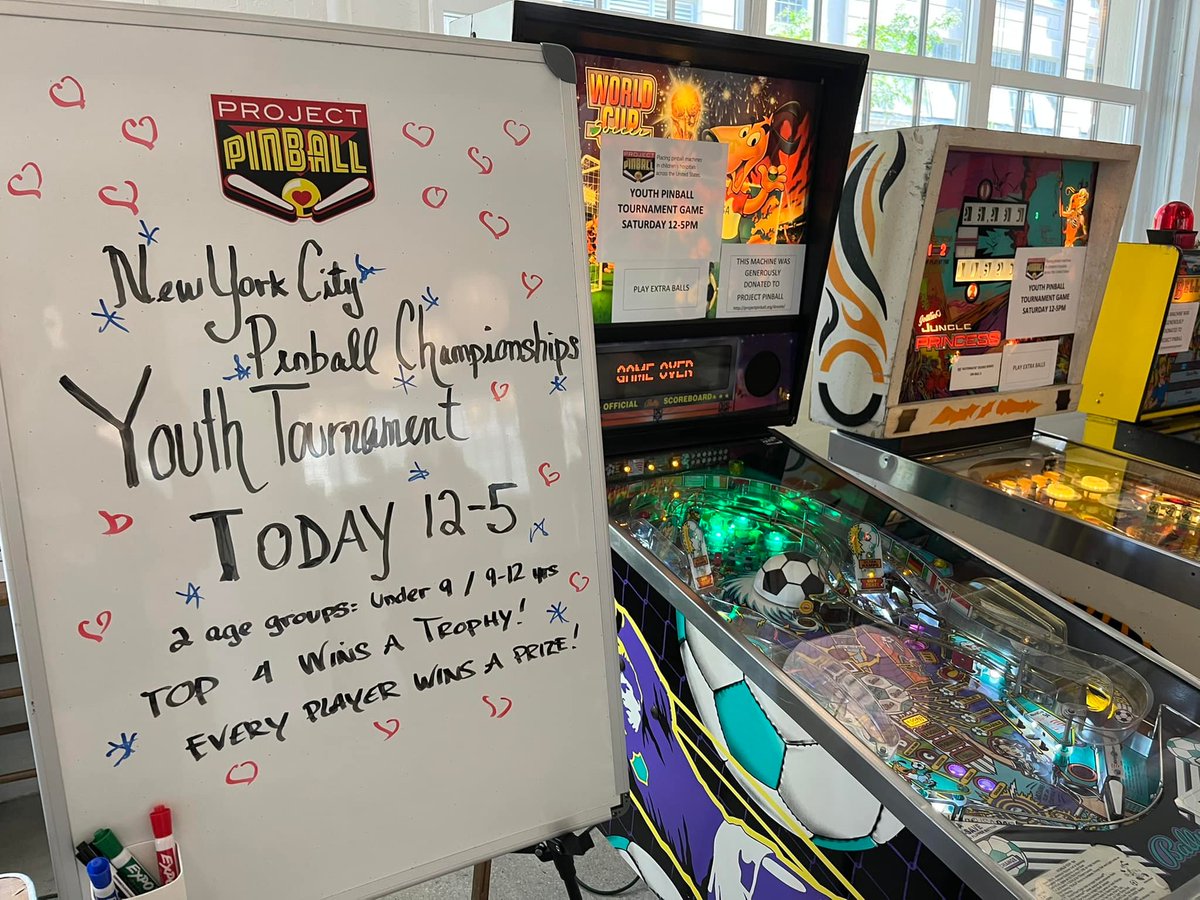 PROJECT
PINBALL
New York City
Pinball Championships
Youth Tournament
TODAY 12-5
2 age groups: Under 9 / 9-12 yrs
TOP 4 WINS A TROPHY!
EVERY PLAYER WINS A PRIZE!
EXPO
EXPO
WORLD
CUP
Soccer
PROJECT
PINBALL
Placing pinball machines
in children's hospitals
across the United States.
YOUTH PINBALL
TOURNAMENT GAME
SATURDAY 12-5PM
PLAY EXTRA BALLS
THIS MACHINE WAS
GENEROUSLY
DONATED TO
PROJECT PINBALL
GAME OVER
OFFICIAL SCOREBOARD
Bally
Gottlieb's
JUNGLE
PRINCESS
YOUTH PINBALL
TOURNAMENT GAME
SATURDAY 12-5PM
PLAY EXTRA BALLS